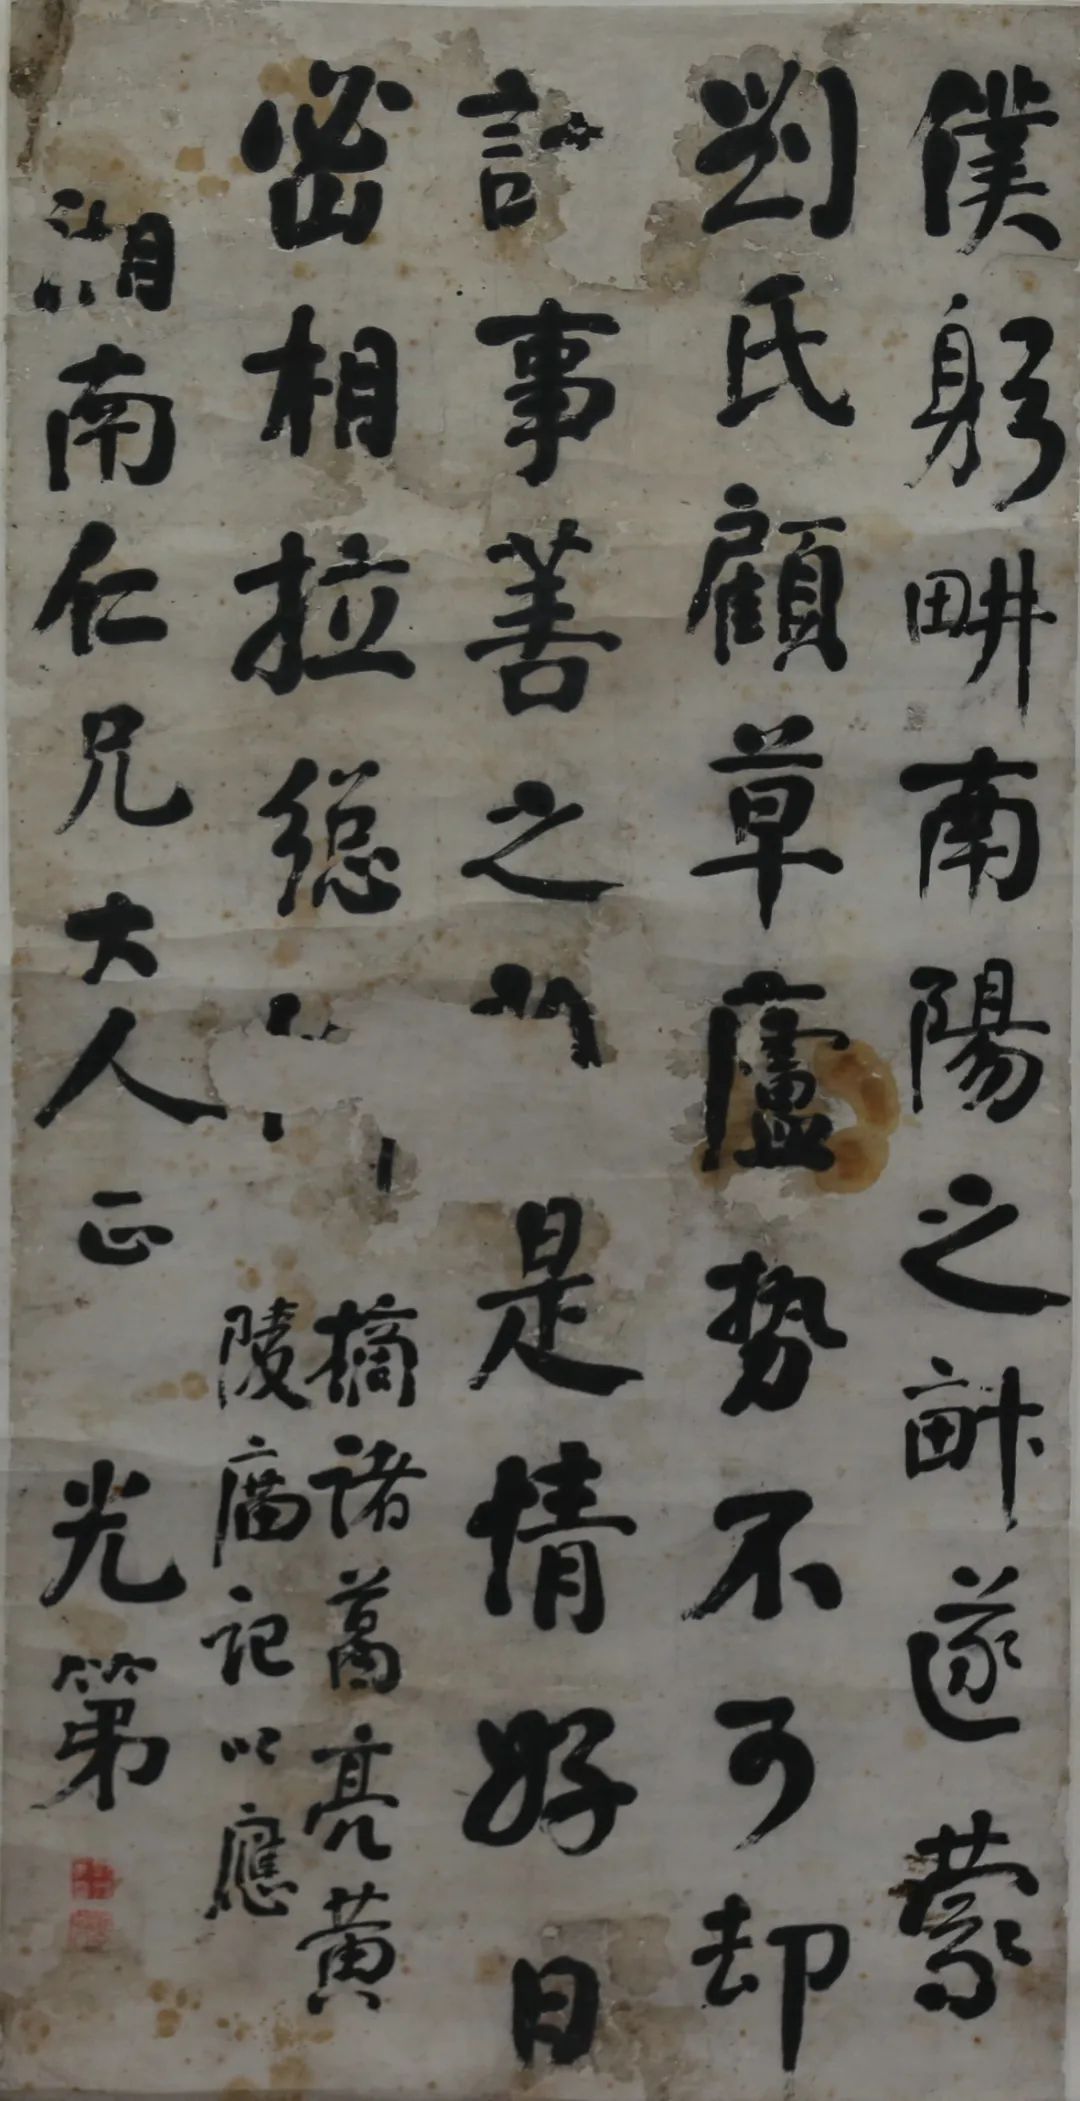 僕躬畊南陽之畝遂蒙
劉氏顧草廬勢不可却
計事善之是情好日
密相拉總
摘諸葛亮黃
陵廟記以應
湖南仁兄大人正
光第